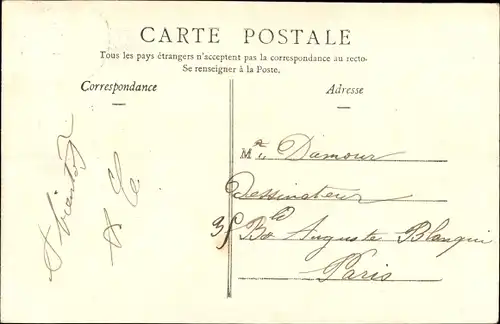 CARTE POSTALE
Tous les pays étrangers n'acceptent pas la correspondance au recto.
Se renseigner à la Poste.
Correspondance
Adresse
A bientôt
M. Damour
Dessinateur
Bd Auguste Blanqui
Paris